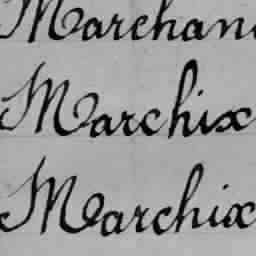 Marchan
Marchix
Marchix